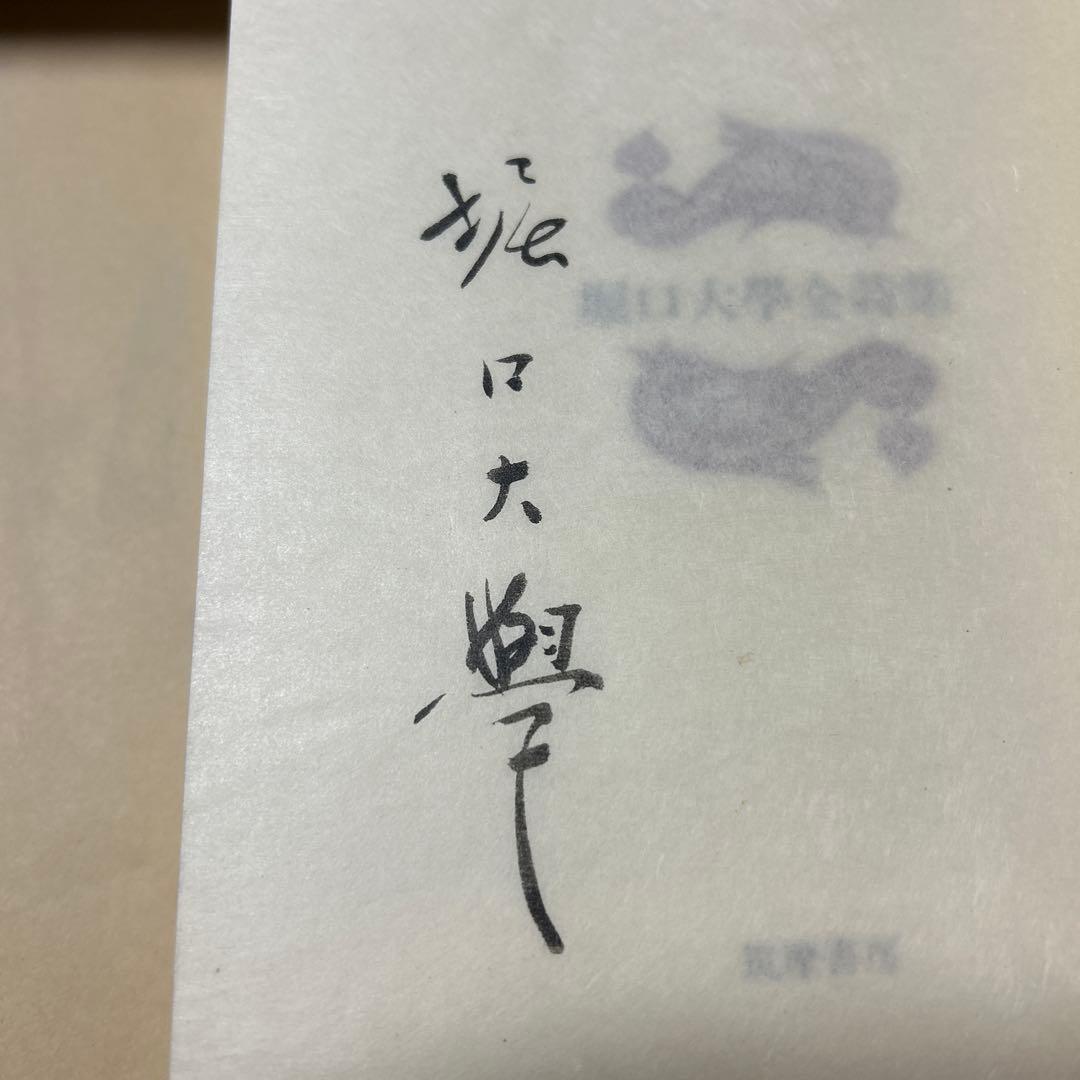 堀口大學
堀口大學全詩集
筑摩書房